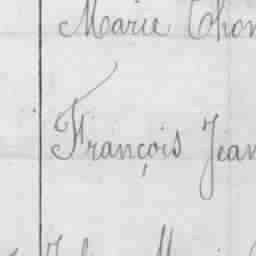 Marie Thom
François Jean